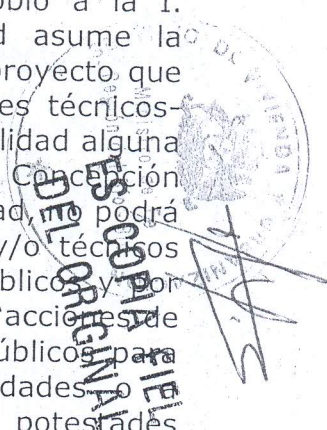 a la I.
asume la
royecto que
es técnicos-
lidad alguna
Concepción
ad, no podrá
y/o técnicos
blicos y por
acciones de
úblicos para
dades o
potestades
ES COPIA FIEL
DEL ORIGINAL
DE VIVIENDA Y